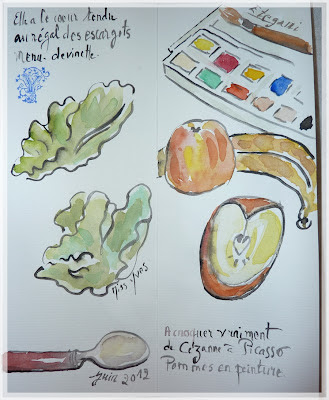 Elle a le coeur tendre
au régal des escargots
Menu-devinette.
Miss-Yves
Juin 2012
A croquer vraiment
de Cézanne à Picasso
Pommes en peinture